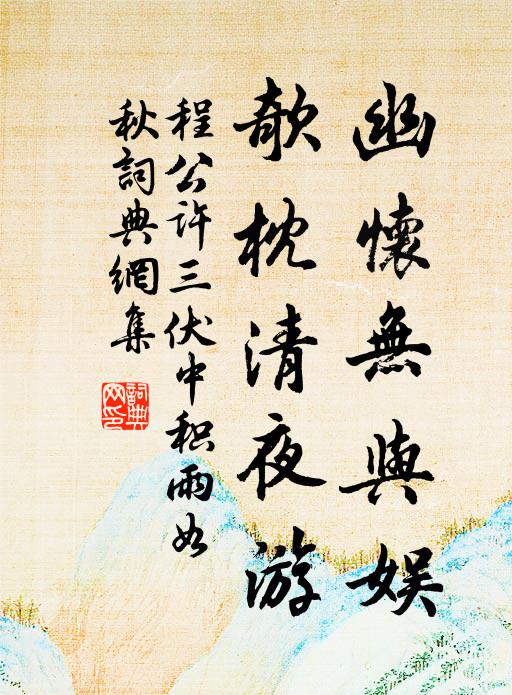 幽懷無與娛
欹枕清夜游
程公許三伏中积雨如
秋詞典網集
詞典網印